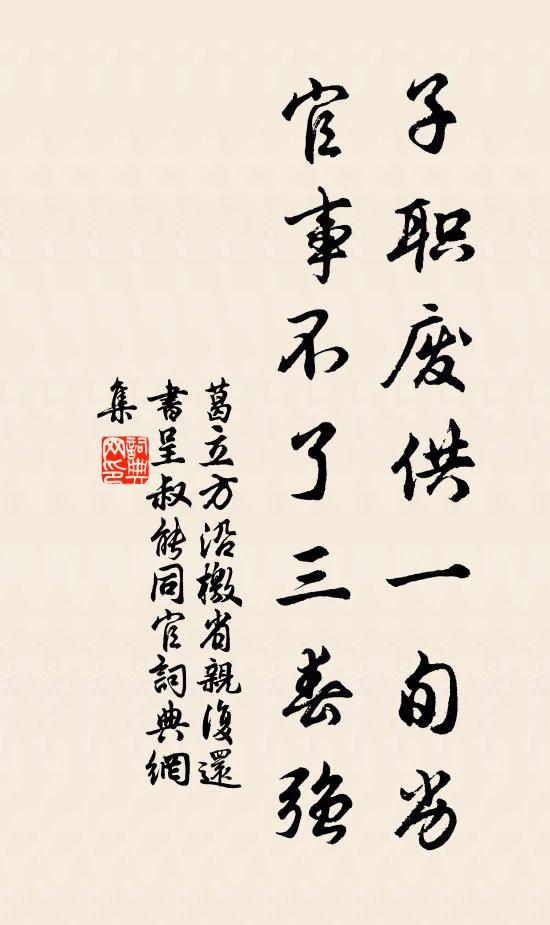 子职废供一旬劣
官事不了三春强
葛立方沿檄省親復還
書呈叔能同官詞典網
集
詞典
网印